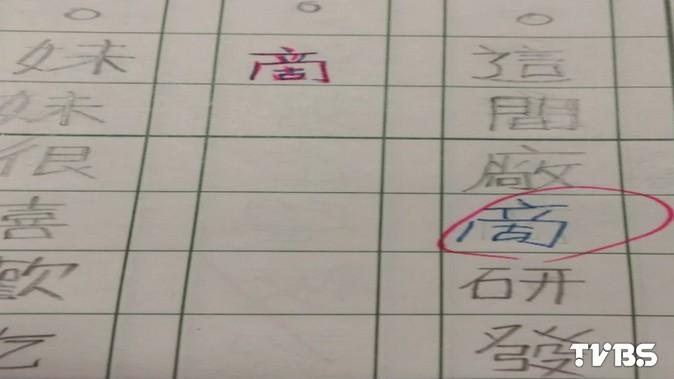 。這間廠商研發
。商
。妹妹很喜歡吃
TVBS